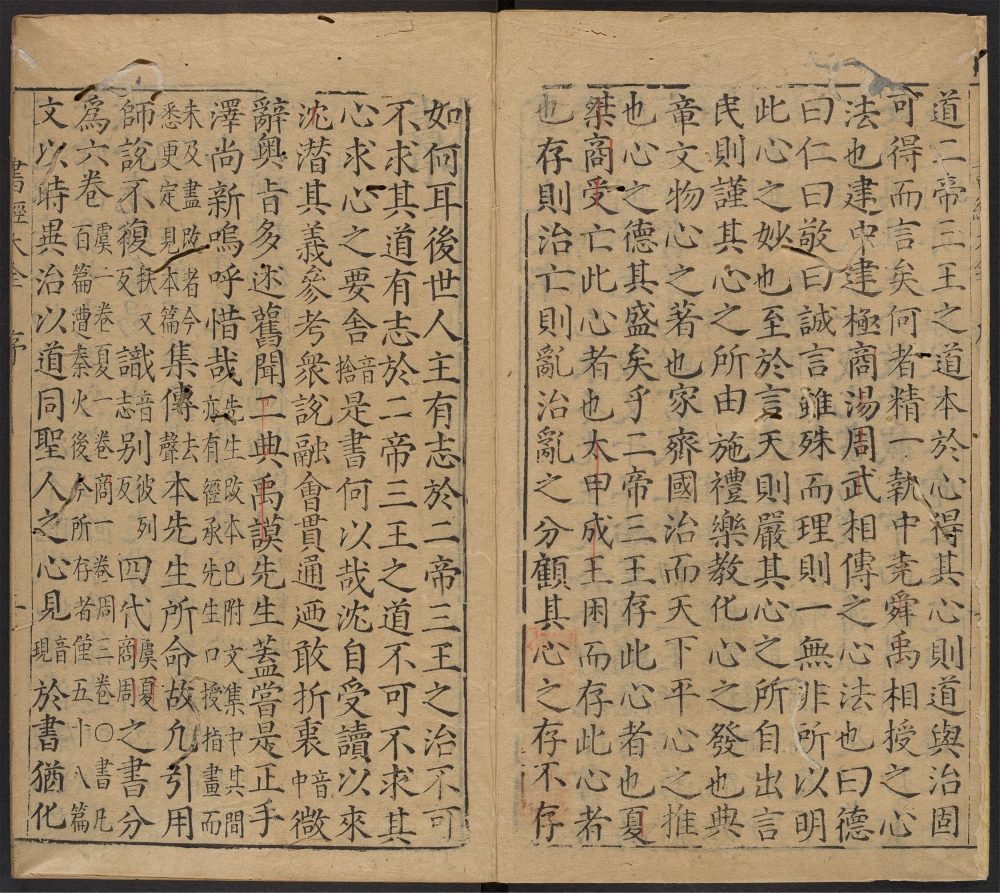 道二帝三王之道本於心得其心則道與治固
可得而言矣何者精一執中堯舜禹相授之心
法也建中建極商湯周武相傳之心法也曰德
曰仁曰敬曰誠言雖殊而理則一無非所以明
此心之妙也至於言天則嚴其心之所自出言
民則謹其心之所由施禮樂教化心之發也典
章文物心之著也家齊國治而天下平心之推
也心之德其盛矣乎二帝三王存此心者也夏
桀商受亡此心者也太甲成王困而存此心者
也存則治亡則亂治亂之分顧其心之存不存
如何耳後世人主有志於二帝三王之治不可
不求其道有志於二帝三王之道不可不求其
心求心之要舍音捨是書何以哉沈自受讀以來
沈潛其義參考衆說融會貫通迺敢折衷音中微
辭奧旨多述舊聞二典禹謨先生蓋嘗是正手
澤尚新嗚呼惜哉先生改本已附文集中其間亦有經承先生口授指畫而
未及盡改者今悉更定見本篇集傳去聲本先生所命故凡引用
師說不復扶又反識音志别彼列反四代虞夏商周之書分
爲六卷虞一卷夏一卷商一卷周三卷○書凡百篇遭秦火後今所存者僅五十八篇
文以時異治以道同聖人之心見音現於書猶化
書經大全 序